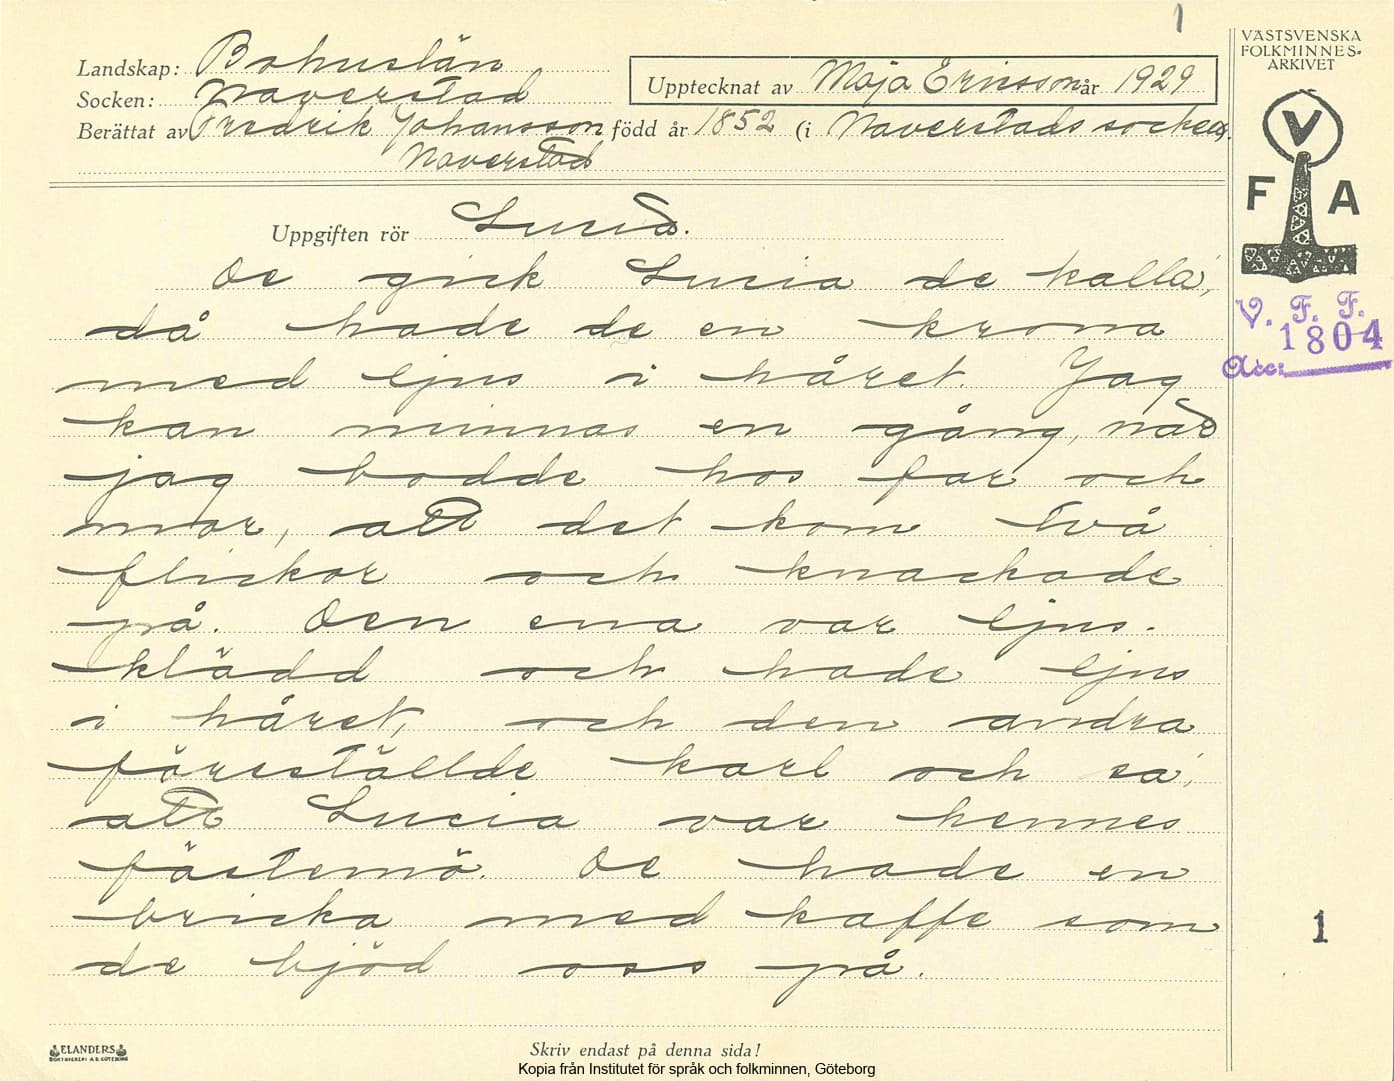 1
VÄSTSVENSKA
FOLKMINNES-
ARKIVET
Landskap: Bohuslän
Upptecknat av Maja Ericsson år 1929
Socken: Naverstad
Berättat av Fredrik Johansson född år 1852 (i Naverstads socken).
Naverstad
V
F A
V. F. F.
1804
Acc:
Uppgiften rör Lucia.
De gick Lucia de kalla',
då hade de en krona
med ljus i håret. Jag
kan minnas en gång, när
jag bodde hos far och
mor, att det kom två
flickor och knackade
på. Den ena var ljus-
klädd och hade ljus
i håret, och den andra
föreställde karl och sa',
att Lucia var hennes
fästemö. De hade en
bricka med kaffe som
de bjöd oss på.
1
ELANDERS
BOKTRYCKERI A.B. GÖTEBORG
Skriv endast på denna sida!
Kopia från Institutet för språk och folkminnen, Göteborg